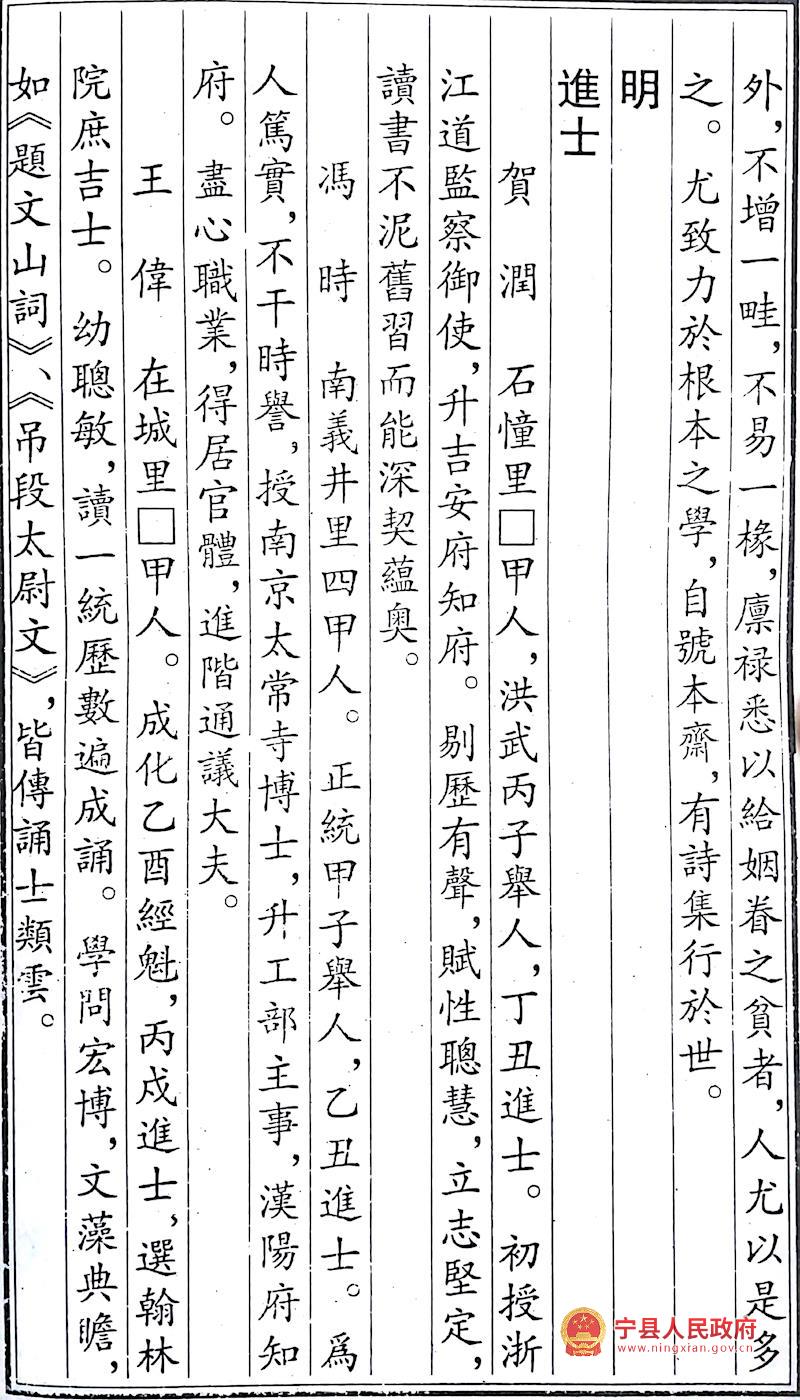 外，不增一畦，不易一椽，廪禄悉以給姻眷之貧者，人尤以是多
之。尤致力於根本之學，自號本齋，有詩集行於世。
明
進士
賀　潤　石憧里□甲人，洪武丙子舉人，丁丑進士。初授浙
江道監察御使，升吉安府知府。剔歷有聲，賦性聰慧，立志堅定，
讀書不泥舊習而能深契蘊奥。
馮　時　南義井里四甲人。正統甲子舉人，乙丑進士。爲
人篤實，不干時譽，授南京太常寺博士，升工部主事，漢陽府知
府。盡心職業，得居官體，進階通議大夫。
王　偉　在城里□甲人。成化乙酉經魁，丙戌進士，選翰林
院庶吉士。幼聰敏，讀一統歷數遍成誦。學問宏博，文藻典瞻，
如《題文山詞》、《吊段太尉文》，皆傳誦士類雲。
宁县人民政府
www.ningxian.gov.cn